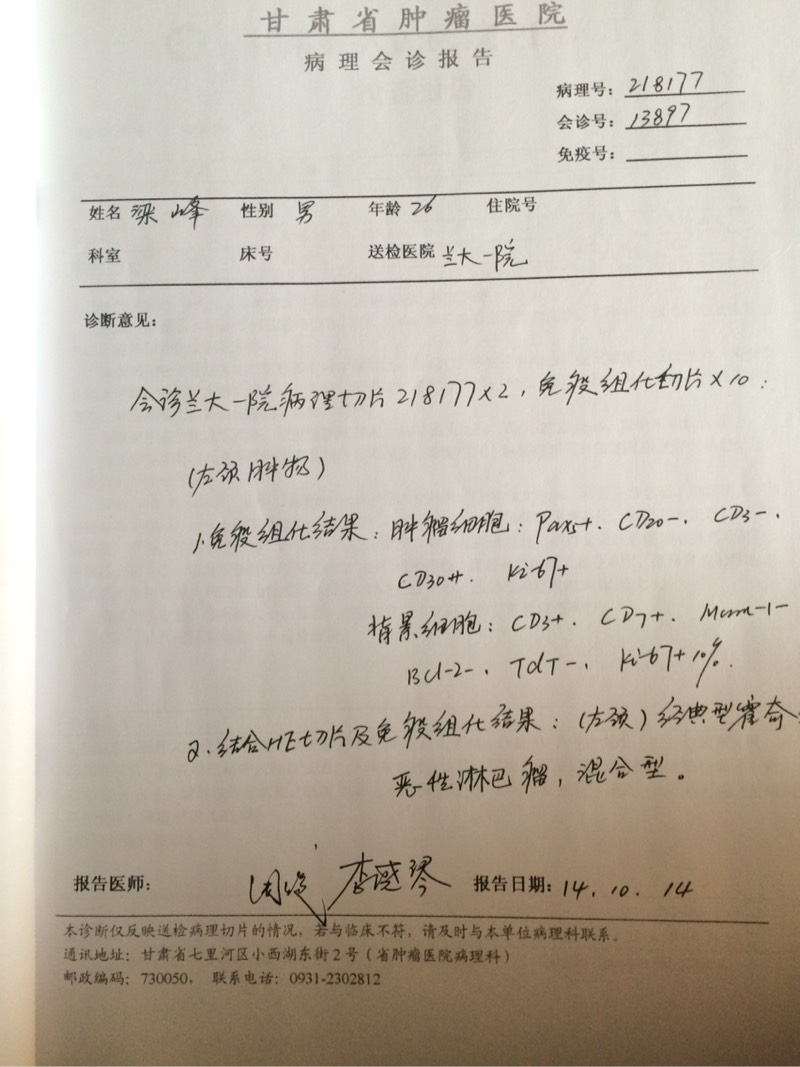 甘肃省肿瘤医院
病理会诊报告
病理号：218177
会诊号：13897
免疫号：
姓名 梁峰 性别 男 年龄 26 住院号
科室 床号 送检医院 兰大一院
诊断意见：
会诊兰大一院病理切片218177×2，免疫组化切片×10：
（左颈肿物）
1.免疫组化结果：肿瘤细胞：Pax5+、CD20-、CD3-、
CD30+、Ki-67+
背景细胞：CD3+、CD7+、Mum-1-
Bcl-2-、TdT-、Ki-67+10%.
2.结合HE切片及免疫组化结果：（左颈）经典型霍奇
恶性淋巴瘤，混合型。
报告医师： 报告日期：14.10.14
本诊断仅反映送检病理切片的情况，若与临床不符，请及时与本单位病理科联系。
通讯地址：甘肃省七里河区小西湖东街2号（省肿瘤医院病理科）
邮政编码：730050， 联系电话：0931-2302812